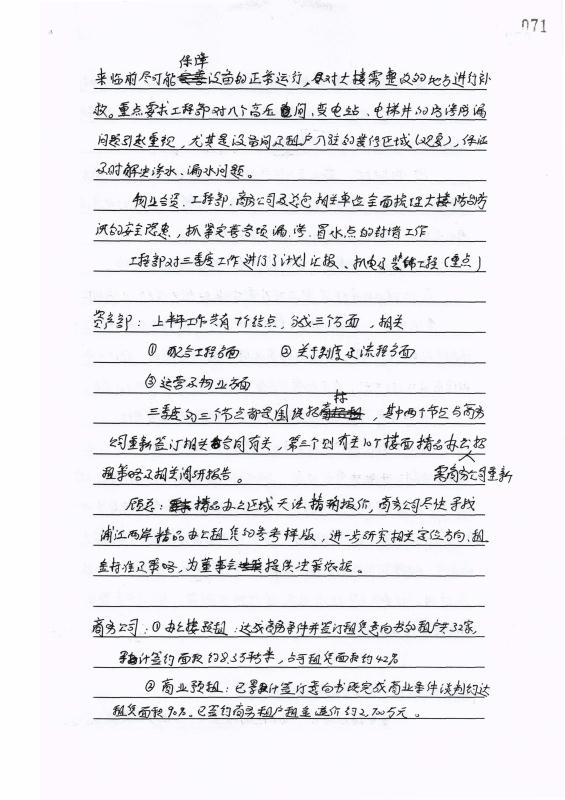 071
保障
来临前尽可能设备的正常运行,及对大楼需整改的地方进行补
救。重点要求工程部对八个高压间、变电站、电梯井的渗漏
问题引起重视,尤其是设备间及租户入驻的装修区域(观复),保证
及时解决渗水、漏水问题。
物业总监、工程部、商务公司及总包相关单位全面梳理大楼防台防
汛的安全隐患,抓紧完善各项漏、渗、冒水点的封堵工作
工程部对三季度工作进行了计划汇报、机电及装饰工程(重点)
资产部:上半年工作共有7个结点,分成三个方面,相关
① 配合工程方面 ② 关于制度及流程方面
③ 运营及物业方面
三季度的三个节点都是围绕招,其中两个节点与商务
公司重新签订相关合同有关,第三个则有关10个楼面精品办公招
需商务公司重新
租策略及相关调研报告。
顾总:精品办公区域无法精确报价,商务公司尽快寻找
浦江两岸精品办公租赁的参考样版,进一步研究相关定位方向、租
金标准及策略,为董事会提供决策依据。
商务公司:① 办公楼预租:达成商务条件并签订租赁意向书的租户共32家,
累计签约面积约8.35万平米,占可租赁面积约42%
② 商业预租:已累计签订意向书及完成商业条件谈判约达
租赁面积90%。已签约商务租户租金造价约2,700万元。